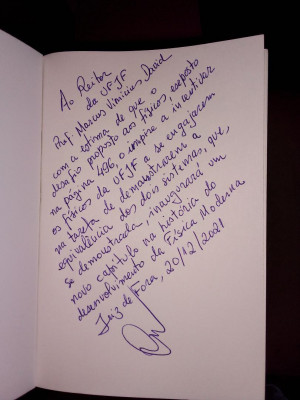 Ao Reitor
da UFJF
Prof. Marcus Vinicius David
com a estima de que o
desafio proposto aos físicos, exposto
na página 496, o inspire a incentivar
os físicos da UFJF a se engajarem
na tarefa de demonstrarem a
equivalência dos dois sistemas, que,
se demonstrada, inaugurará um
novo capítulo na história do
desenvolvimento da Física Moderna
Juiz de Fora, 20/12/2021